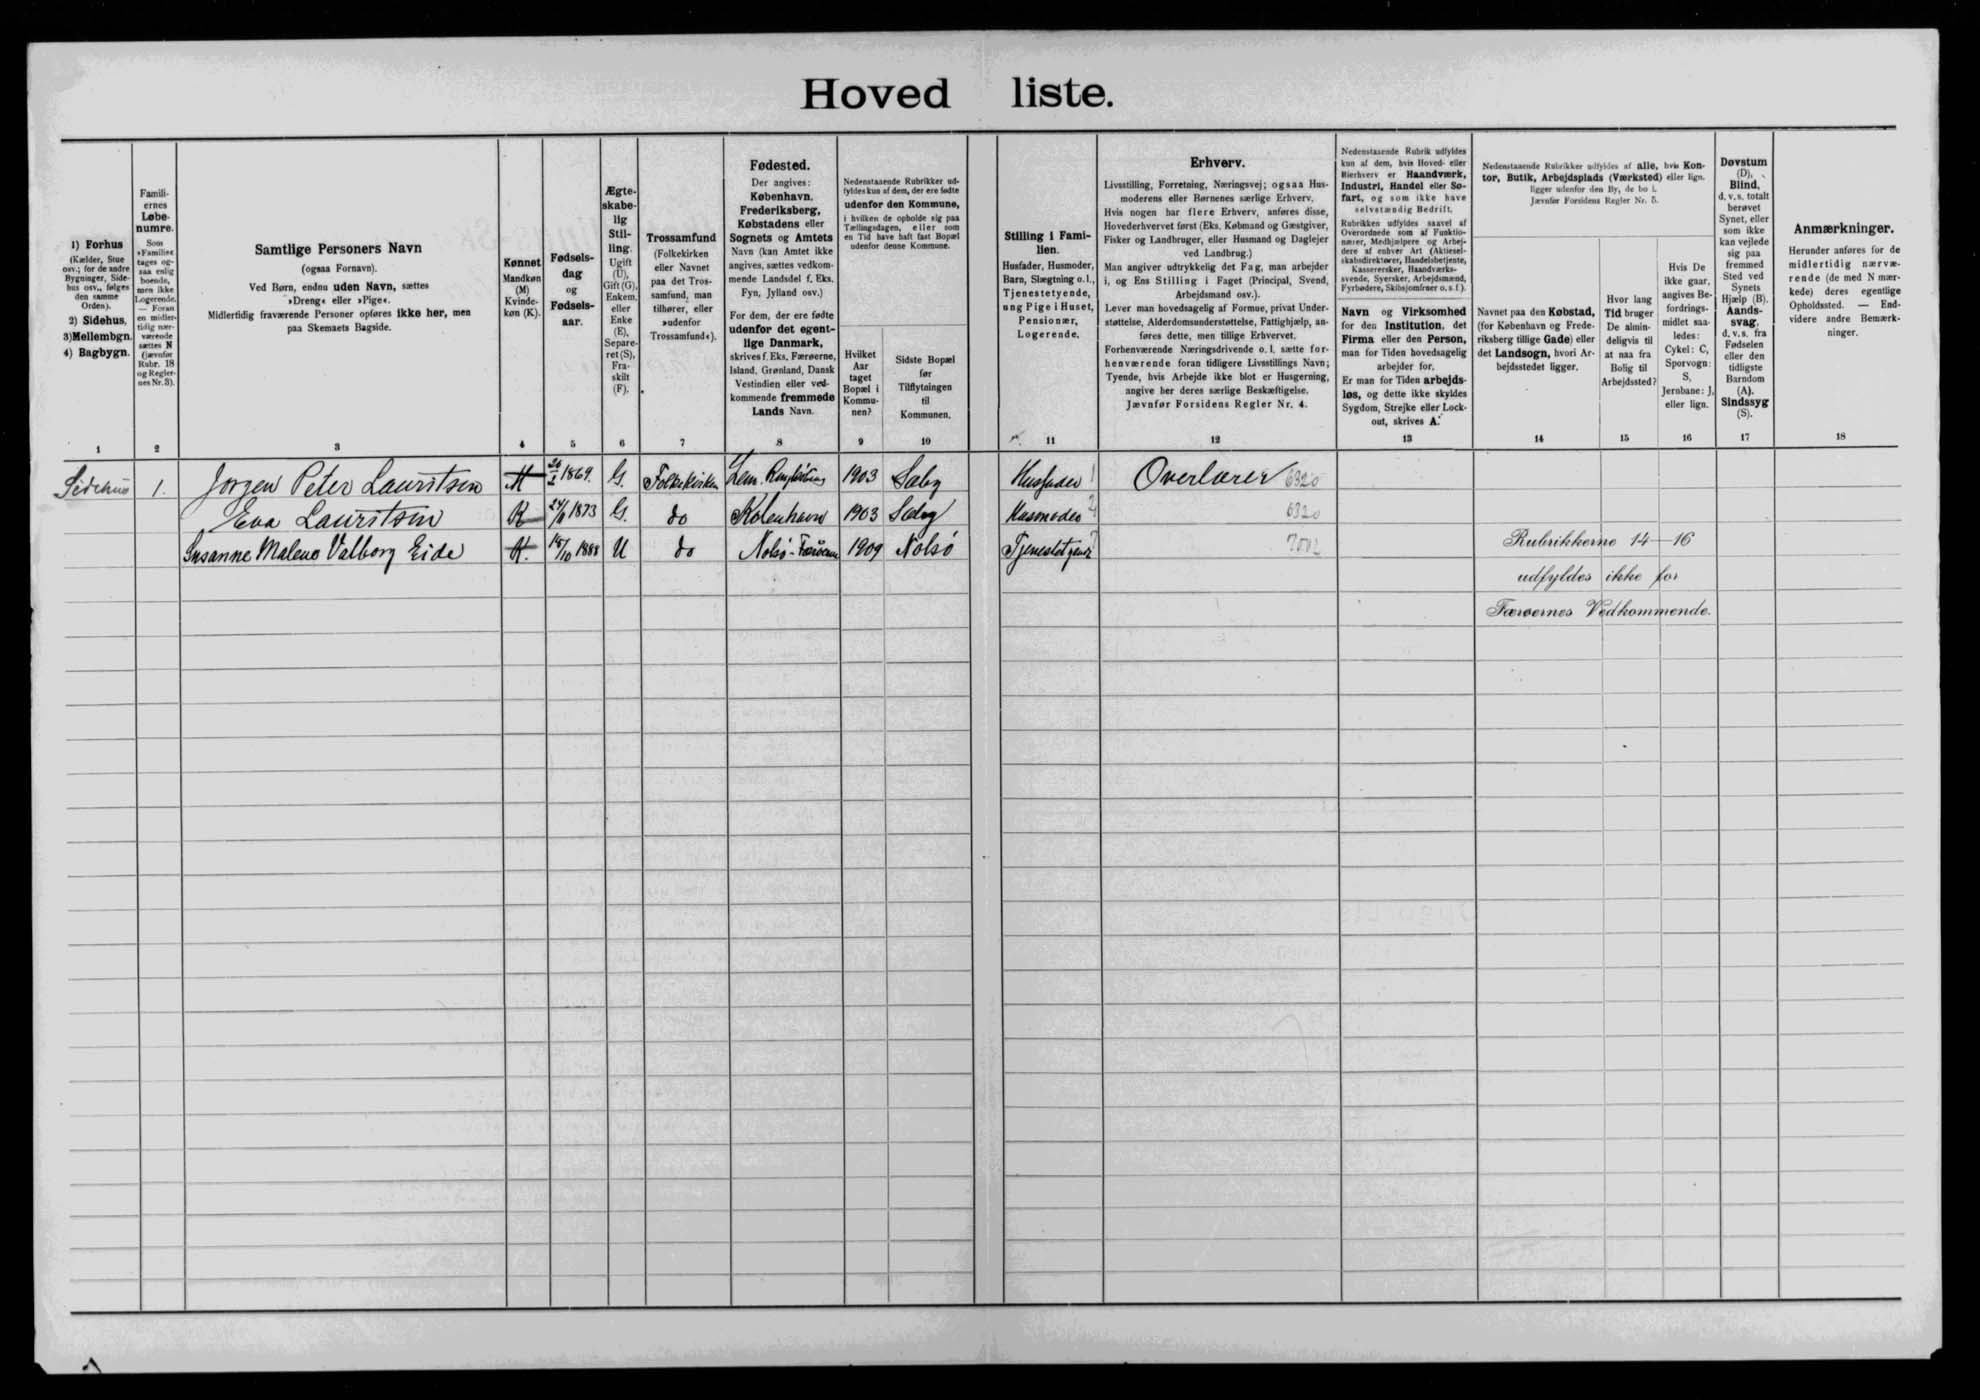 Hoved liste.
1) Forhus
(Kælder, Stue
osv.; for de andre
Bygninger, Side-
hus osv., følges
den samme
Orden).
2) Sidehus,
3) Mellembgn.
4) Bagbygn.
1
Famili-
ernes
Løbe-
numre.
Som
»Familie«
tages og-
saa enlig
boende,
men ikke
Logerende.
— Foran
en midler-
tidig nær-
værende
sættes N
(jævnfør
Rubr. 18
og Regler-
nes Nr. 3).
2
Samtlige Personers Navn
(ogsaa Fornavn).
Ved Børn, endnu uden Navn, sættes
»Dreng« eller »Pige«.
Midlertidig fraværende Personer opføres ikke her, men
paa Skemaets Bagside.
3
Kønnet
Mandkøn
(M)
Kvinde-
køn (K).
4
Fødsels-
dag
og
Fødsels-
aar.
5
Ægte-
skabe-
lig
Stil-
ling.
Ugift
(U),
Gift (G),
Enkem.
eller
Enke
(E),
Separe-
ret (S),
Fra-
skilt
(F).
6
Trossamfund
(Folkekirken
eller Navnet
paa det Tros-
samfund, man
tilhører, eller
»udenfor
Trossamfund«).
7
Fødested.
Der angives:
København,
Frederiksberg,
Købstadens eller
Sognets og Amtets
Navn (kan Amtet ikke
angives, sættes vedkom-
mende Landsdel f. Eks.
Fyn, Jylland osv.)
For dem, der ere fødte
udenfor det egent-
lige Danmark,
skrives f. Eks. Færøerne,
Island, Grønland, Dansk
Vestindien eller ved-
kommende fremmede
Lands Navn.
8
Nedenstaaende Rubrikker ud-
fyldes kun af dem, der ere fødte
udenfor den Kommune,
i hvilken de opholde sig paa
Tællingsdagen, eller som
en Tid have haft fast Bopæl
udenfor denne Kommune.
Hvilket
Aar
taget
Bopæl i
Kommu-
nen?
9
Sidste Bopæl
før
Tilflytningen
til
Kommunen.
10
Stilling i Fami-
lien.
Husfader, Husmoder,
Barn, Slægtning o. l.,
Tjenestetyende,
ung Pige i Huset,
Pensionær,
Logerende.
11
Erhverv.
Livsstilling, Forretning, Næringsvej; ogsaa Hus-
moderens eller Børnenes særlige Erhverv.
Hvis nogen har flere Erhverv, anføres disse,
Hovederhvervet først (Eks. Købmand og Gæstgiver,
Fisker og Landbruger, eller Husmand og Daglejer
ved Landbrug.)
Man angiver udtrykkelig det Fag, man arbejder
i, og Ens Stilling i Faget (Principal, Svend,
Arbejdsmand osv.).
Lever man hovedsagelig af Formue, privat Under-
støttelse, Alderdomsunderstøttelse, Fattighjælp, an-
føres dette, men tillige Erhvervet.
Forhenværende Næringsdrivende o. l. sætte for-
henværende foran tidligere Livsstillings Navn;
Tyende, hvis Arbejde ikke blot er Husgerning,
angive her deres særlige Beskæftigelse.
Jævnfør Forsidens Regler Nr. 4.
12
Nedenstaaende Rubrik udfyldes
kun af dem, hvis Hoved- eller
Bierhverv er Haandværk,
Industri, Handel eller Sø-
fart, og som ikke have
selvstændig Bedrift.
Rubrikken udfyldes saavel af
Overordnede som af Funktio-
nærer, Medhjælpere og Arbej-
dere af enhver Art (Aktiesel-
skabsdirektører, Handelsbetjente,
Kasserersker, Haandværks-
svende, Syersker, Arbejdsmænd,
Fyrbødere, Skibsjomfruer o. s. f.).
Navn og Virksomhed
for den Institution, det
Firma eller den Person,
man for Tiden hovedsagelig
arbejder for.
Er man for Tiden arbejds-
løs, og dette ikke skyldes
Sygdom, Strejke eller Lock-
out, skrives A.
13
Nedenstaaende Rubrikker udfyldes af alle, hvis Kon-
tor, Butik, Arbejdsplads (Værksted) eller lign.
ligger udenfor den By, de bo i.
Jævnfør Forsidens Regler Nr. 5.
Navnet paa den Købstad,
(for København og Frede-
riksberg tillige Gade) eller
det Landsogn, hvori Ar-
bejdsstedet ligger.
14
Hvor lang
Tid bruger
De almin-
deligvis til
at naa fra
Bolig til
Arbejdssted?
15
Hvis De
ikke gaar,
angives Be-
fordrings-
midlet saa-
ledes:
Cykel: C,
Sporvogn:
S,
Jernbane: J,
eller lign.
16
Døvstum
(D),
Blind,
d. v. s. totalt
berøvet
Synet, eller
som ikke
kan vejlede
sig paa
fremmed
Sted ved
Synets
Hjælp (B).
Aands-
svag,
d. v. s. fra
Fødselen
eller den
tidligste
Barndom
(A).
Sindssyg
(S).
17
Anmærkninger.
Herunder anføres for de
midlertidig nærvæ-
rende (de med N mær-
kede) deres egentlige
Opholdssted. — End-
videre andre Bemærk-
ninger.
18
Sidehus 1. Jørgen Peter Lauritsen M 1869. G. Folkekirken Lem Ringkøbing 1903 Saby Husfader 1 Overlærer 6320
Eva Lauritsen K 1873 G. do København 1903 Saby Husmoder 2 6320
Susanne Malene Valborg Eide K. 15/10 1888 U do Nolsø - Færøerne 1909 Nolsø Tjenestetyende
Rubrikkerne 14-16
udfyldes ikke for
Færøernes Vedkommende.